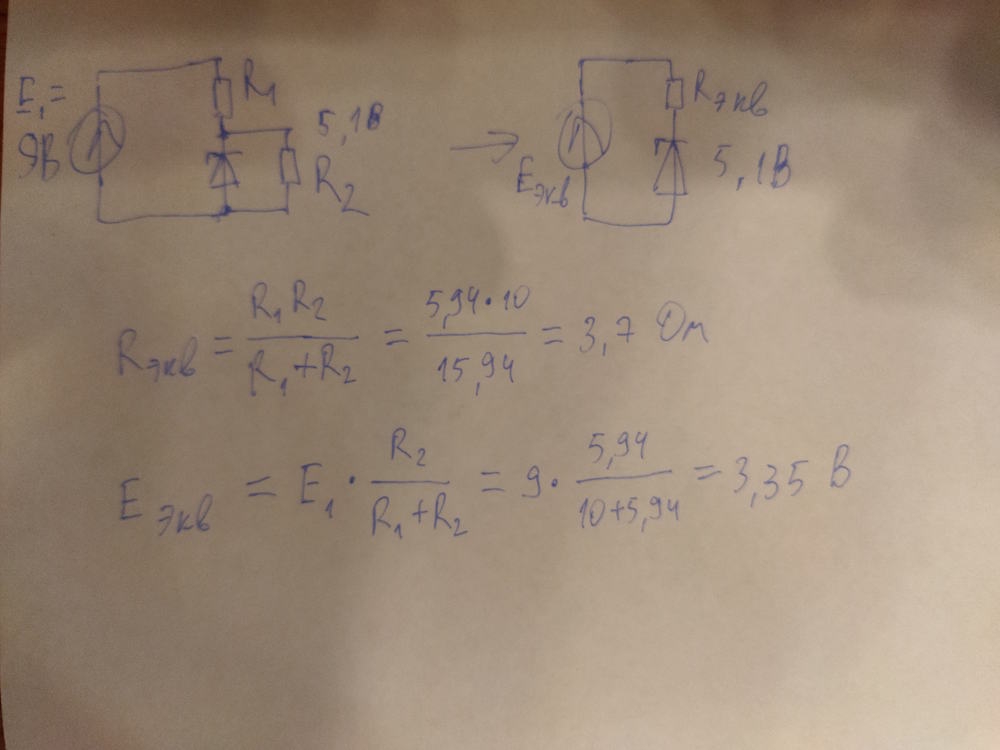 E₁ =
9В
R₁
5,1В
R₂
→
Eэкв
Rэкв
5,1В
Rэкв = R₁R₂ / (R₁+R₂) = 5,94·10 / 15,94 = 3,7 Ом
Eэкв = E₁ · R₂ / (R₁+R₂) = 9 · 5,94 / (10+5,94) = 3,35 В